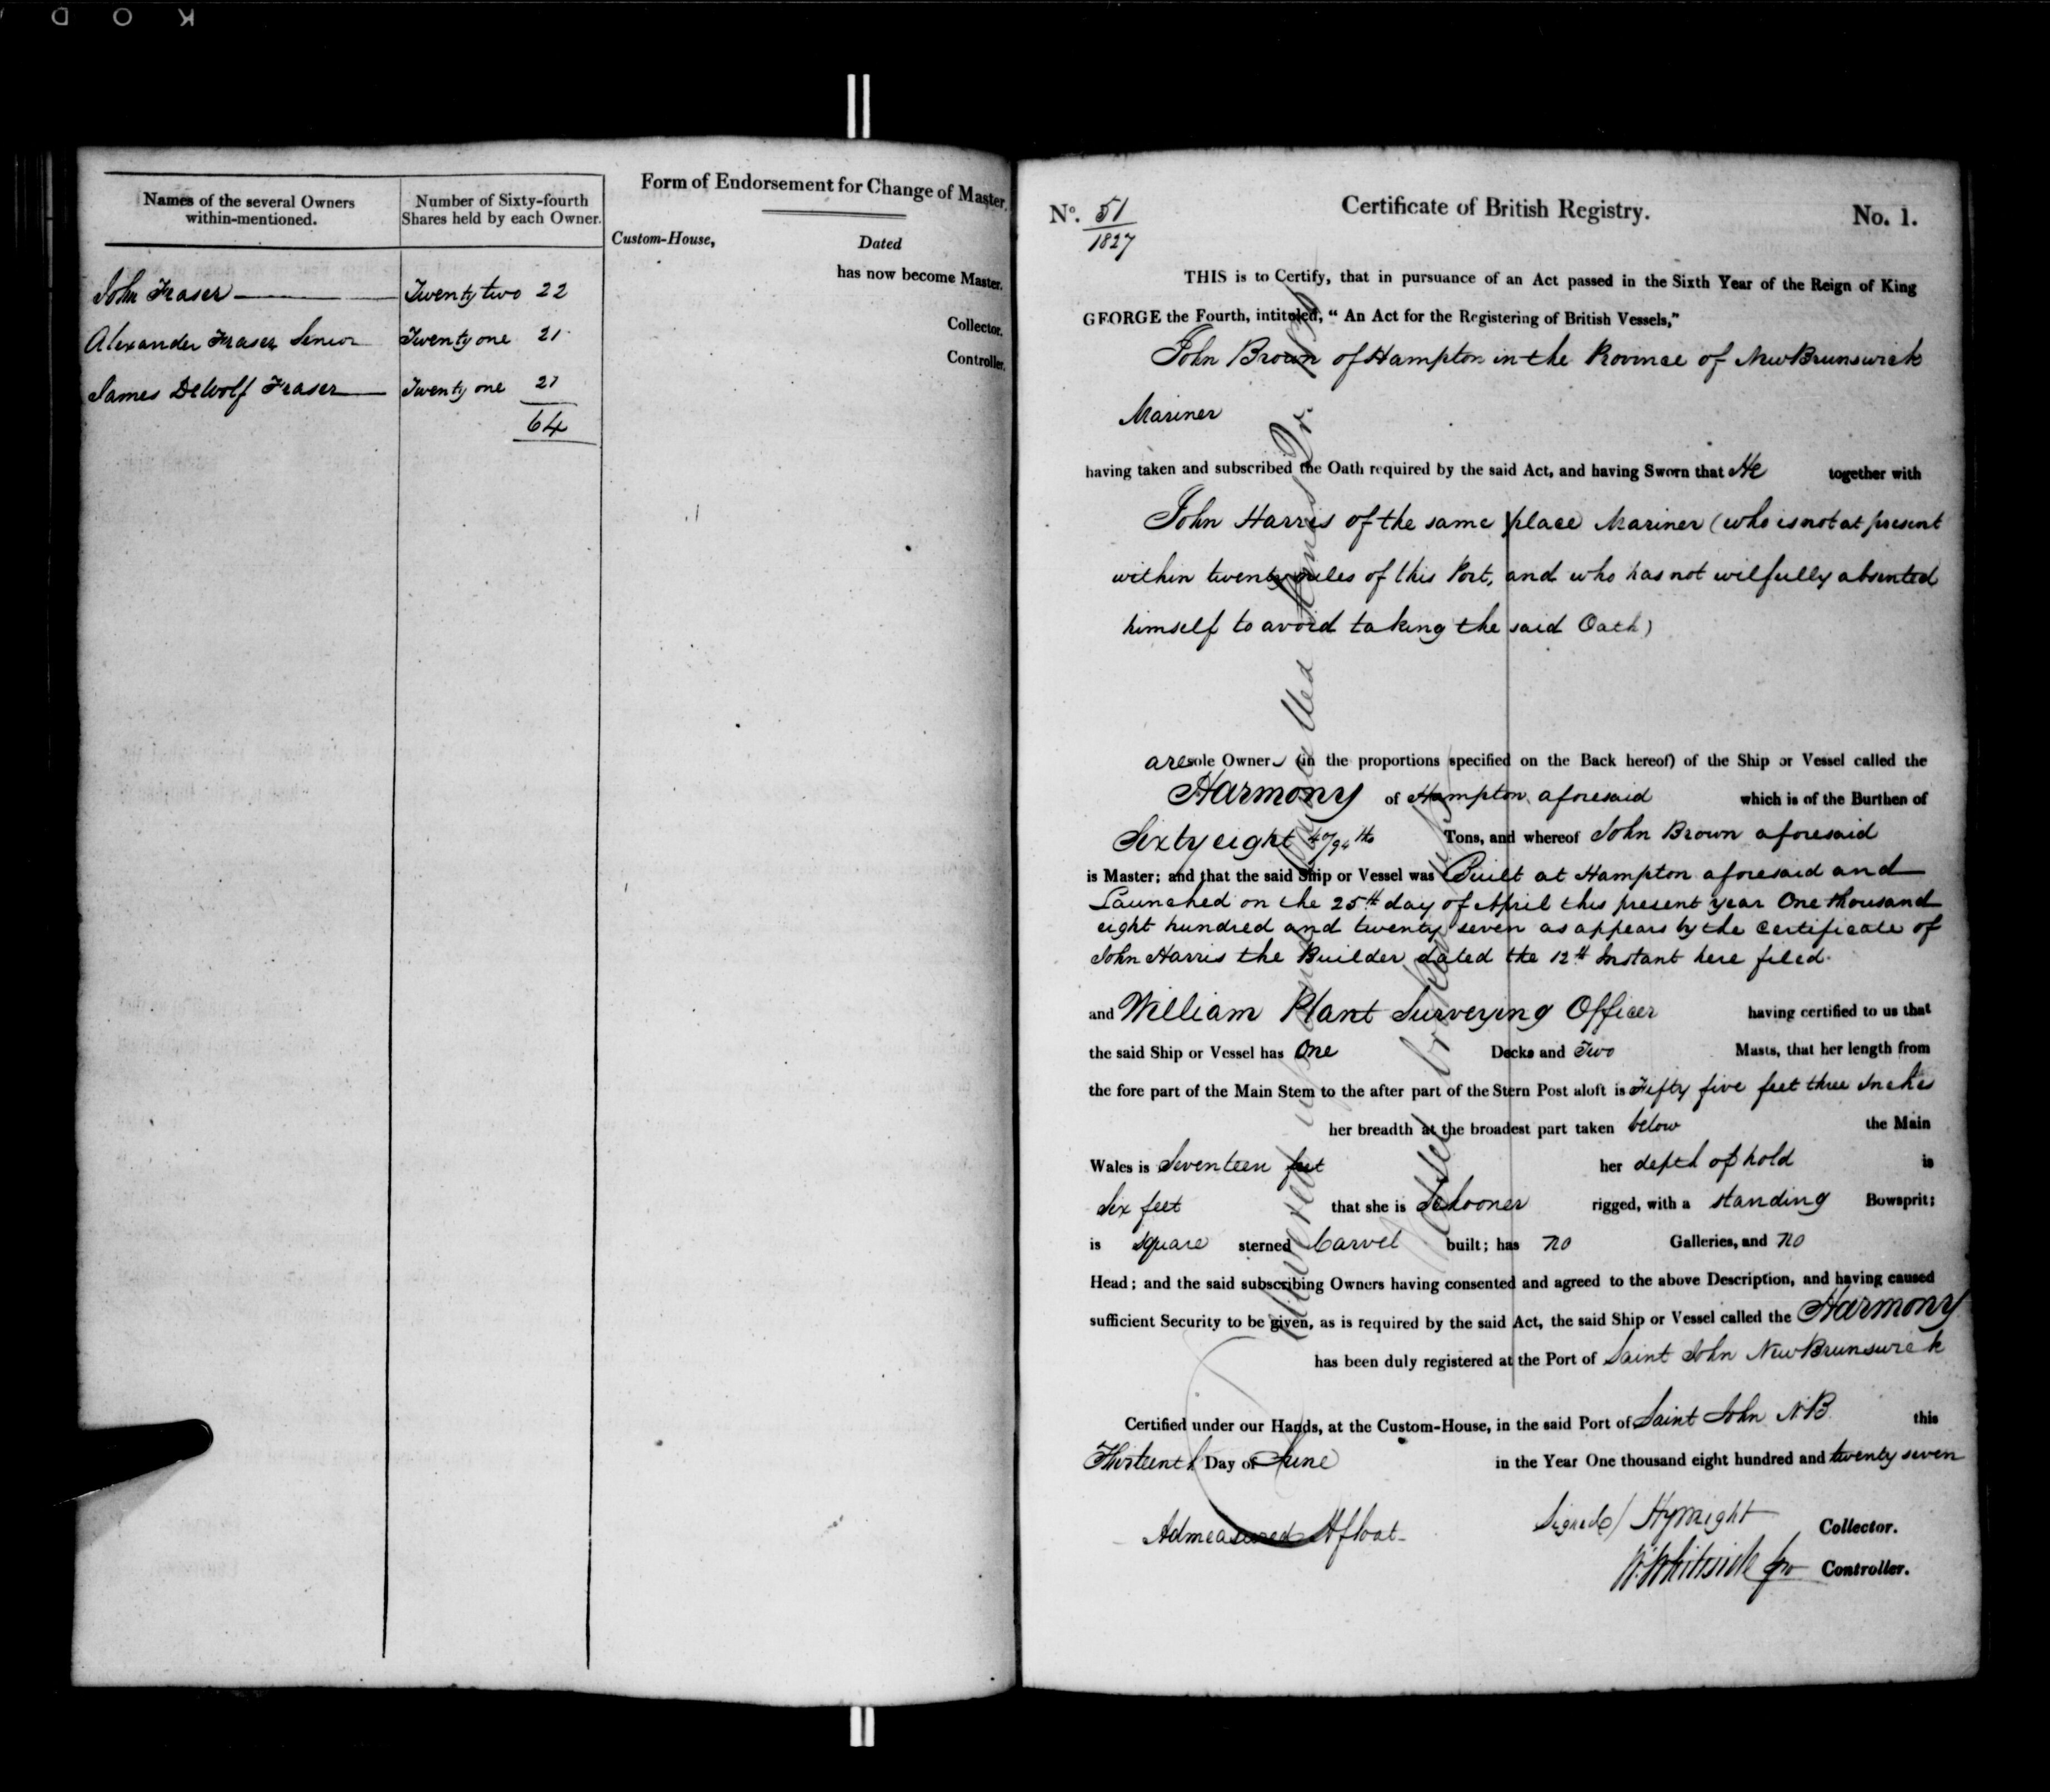 K O D
Names of the several Owners within-mentioned.
Number of Sixty-fourth Shares held by each Owner.
John Fraser Twenty two 22
Alexander Fraser Senior Twenty one 21
James DeWolf Fraser Twenty one 21
64
Form of Endorsement for Change of Master.
Custom-House, Dated
has now become Master.
Collector.
Controller.
No. 51/1827 Certificate of British Registry. No. 1.
THIS is to Certify, that in pursuance of an Act passed in the Sixth Year of the Reign of King
GEORGE the Fourth, intituled, "An Act for the Registering of British Vessels,"
John Brown of Hampton in the Province of New Brunswick
Mariner
having taken and subscribed the Oath required by the said Act, and having Sworn that He together with
John Harris of the same place Mariner (who is not at present
within twenty miles of this Port, and who has not wilfully absented
himself to avoid taking the said Oath)
are sole Owners (in the proportions specified on the Back hereof) of the Ship or Vessel called the
Harmony of Hampton aforesaid which is of the Burthen of
Sixty eight 40/94ths Tons, and whereof John Brown aforesaid
is Master; and that the said Ship or Vessel was Built at Hampton aforesaid and
Launched on the 25th day of April this present year One thousand
eight hundred and twenty seven as appears by the Certificate of
John Harris the Builder dated the 12th Instant here filed.
and William Plant Surveying Officer having certified to us that
the said Ship or Vessel has One Decks and Two Masts, that her length from
the fore part of the Main Stem to the after part of the Stern Post aloft is Fifty five feet three Inches
her breadth at the broadest part taken below the Main
Wales is Seventeen feet her depth of hold is
Six feet that she is Schooner rigged, with a standing Bowsprit;
is square sterned Carvel built; has no Galleries, and no
Head; and the said subscribing Owners having consented and agreed to the above Description, and having caused
sufficient Security to be given, as is required by the said Act, the said Ship or Vessel called the Harmony
has been duly registered at the Port of Saint John New Brunswick
Certified under our Hands, at the Custom-House, in the said Port of Saint John NB this
Thirteenth Day of June in the Year One thousand eight hundred and twenty seven
Admeasured Afloat
Signed/ Hy Wright Collector.
W. Whiteside pro Controller.